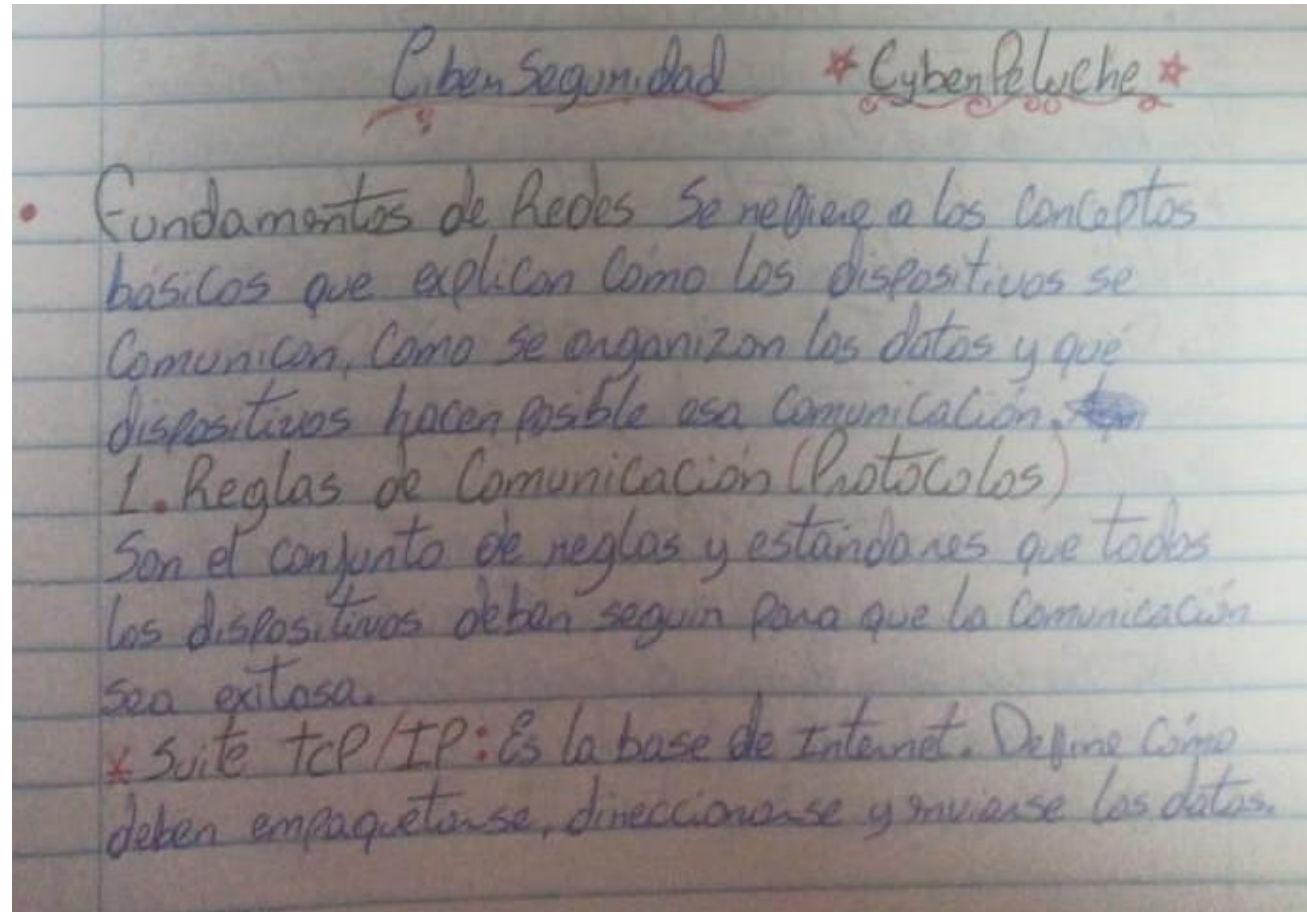 CiberSeguridad *CyberPeluche*
• Fundamentos de Redes Se refiere a los Conceptos
básicos que explican Cómo los dispositivos se
Comunican, Cómo se organizan los datos y qué
dispositivos hacen posible esa Comunicación.
1. Reglas de Comunicación (Protocolos)
Son el conjunto de reglas y estándares que todos
los dispositivos deben seguir para que la Comunicación
sea exitosa.
* Suite TCP/IP: Es la base de Internet. Define Cómo
deben empaquetarse, direccionarse y enviarse los datos.